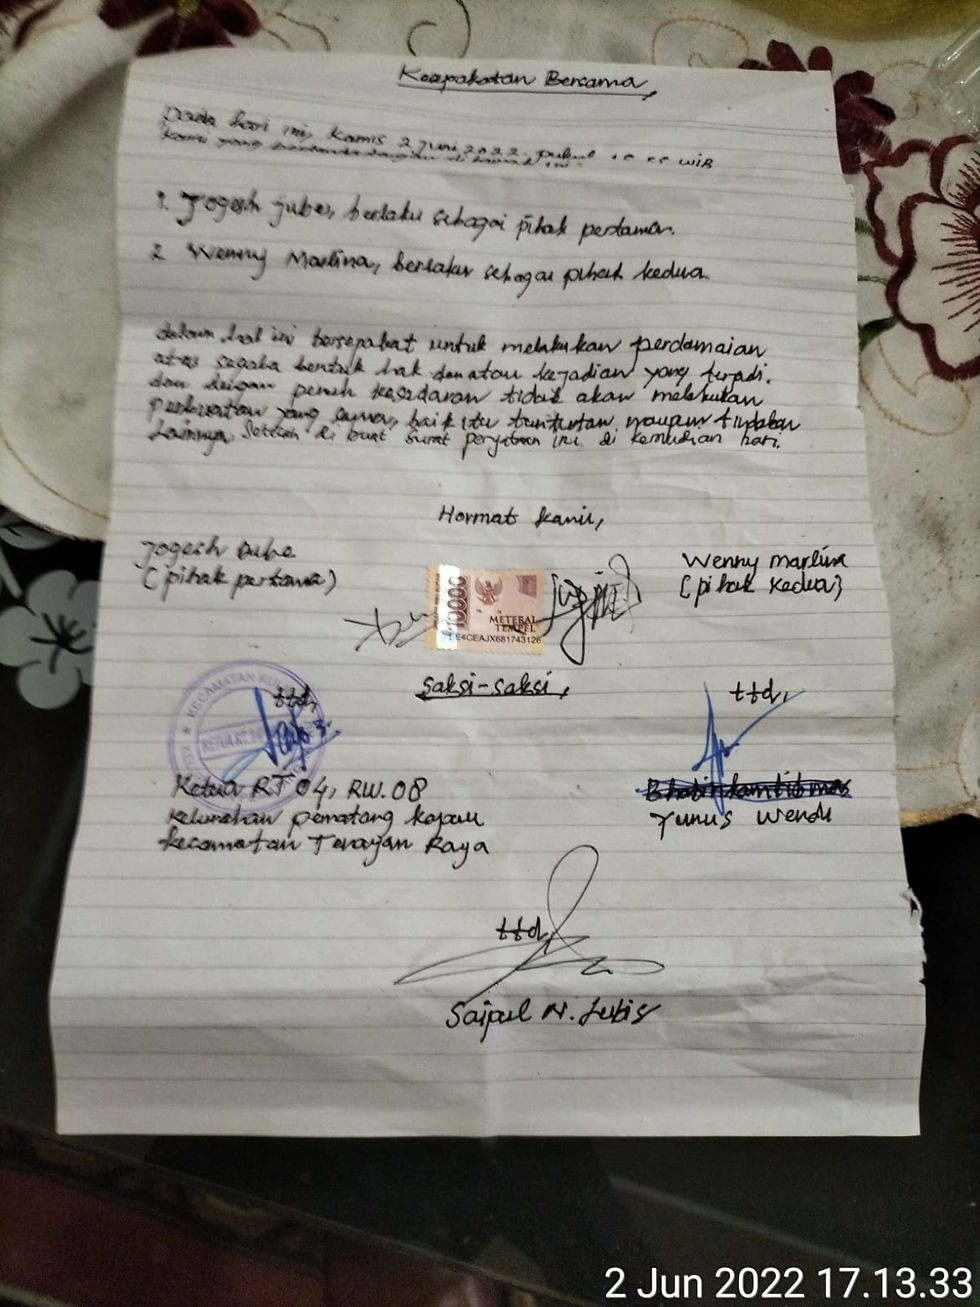 Kesepakatan Bersama,
Pada hari ini, Kamis 2 Juni 2022. pukul WIB
kami yang bertandatangan di bawah ini:
1. Jogesh Jube, berlaku sebagai pihak pertama.
2. Wenny Marlina, berlaku sebagai pihak kedua.
dalam hal ini bersepakat untuk melakukan perdamaian
atas segala bentuk hak dan atau kejadian yang terjadi.
dan dengan penuh kesadaran tidak akan melakukan
perbuatan yang sama, baik itu tuntutan, maupun tindakan
Lainnya, Setelah di buat surat ini di kemudian hari.
Hormat Kami,
Jogesh
(pihak pertama)
Wenny Marlina
(pihak kedua)
10000
METERAI
TEMPEL
681743126
Saksi-saksi,
ttd,
ttd,
KECAMATAN
KETUA RT.
Ketua RT 04, RW. 08
Kelurahan Pematang Kapau
Kecamatan Tenayan Raya
Bhabinkamtibmas
Yunus Wendi
ttd,
Saipul N. Lubis
2 Jun 2022 17.13.33